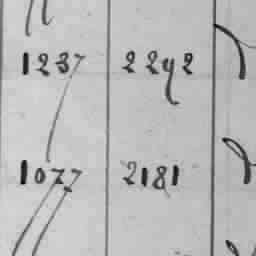 1237 2292
1077 2181